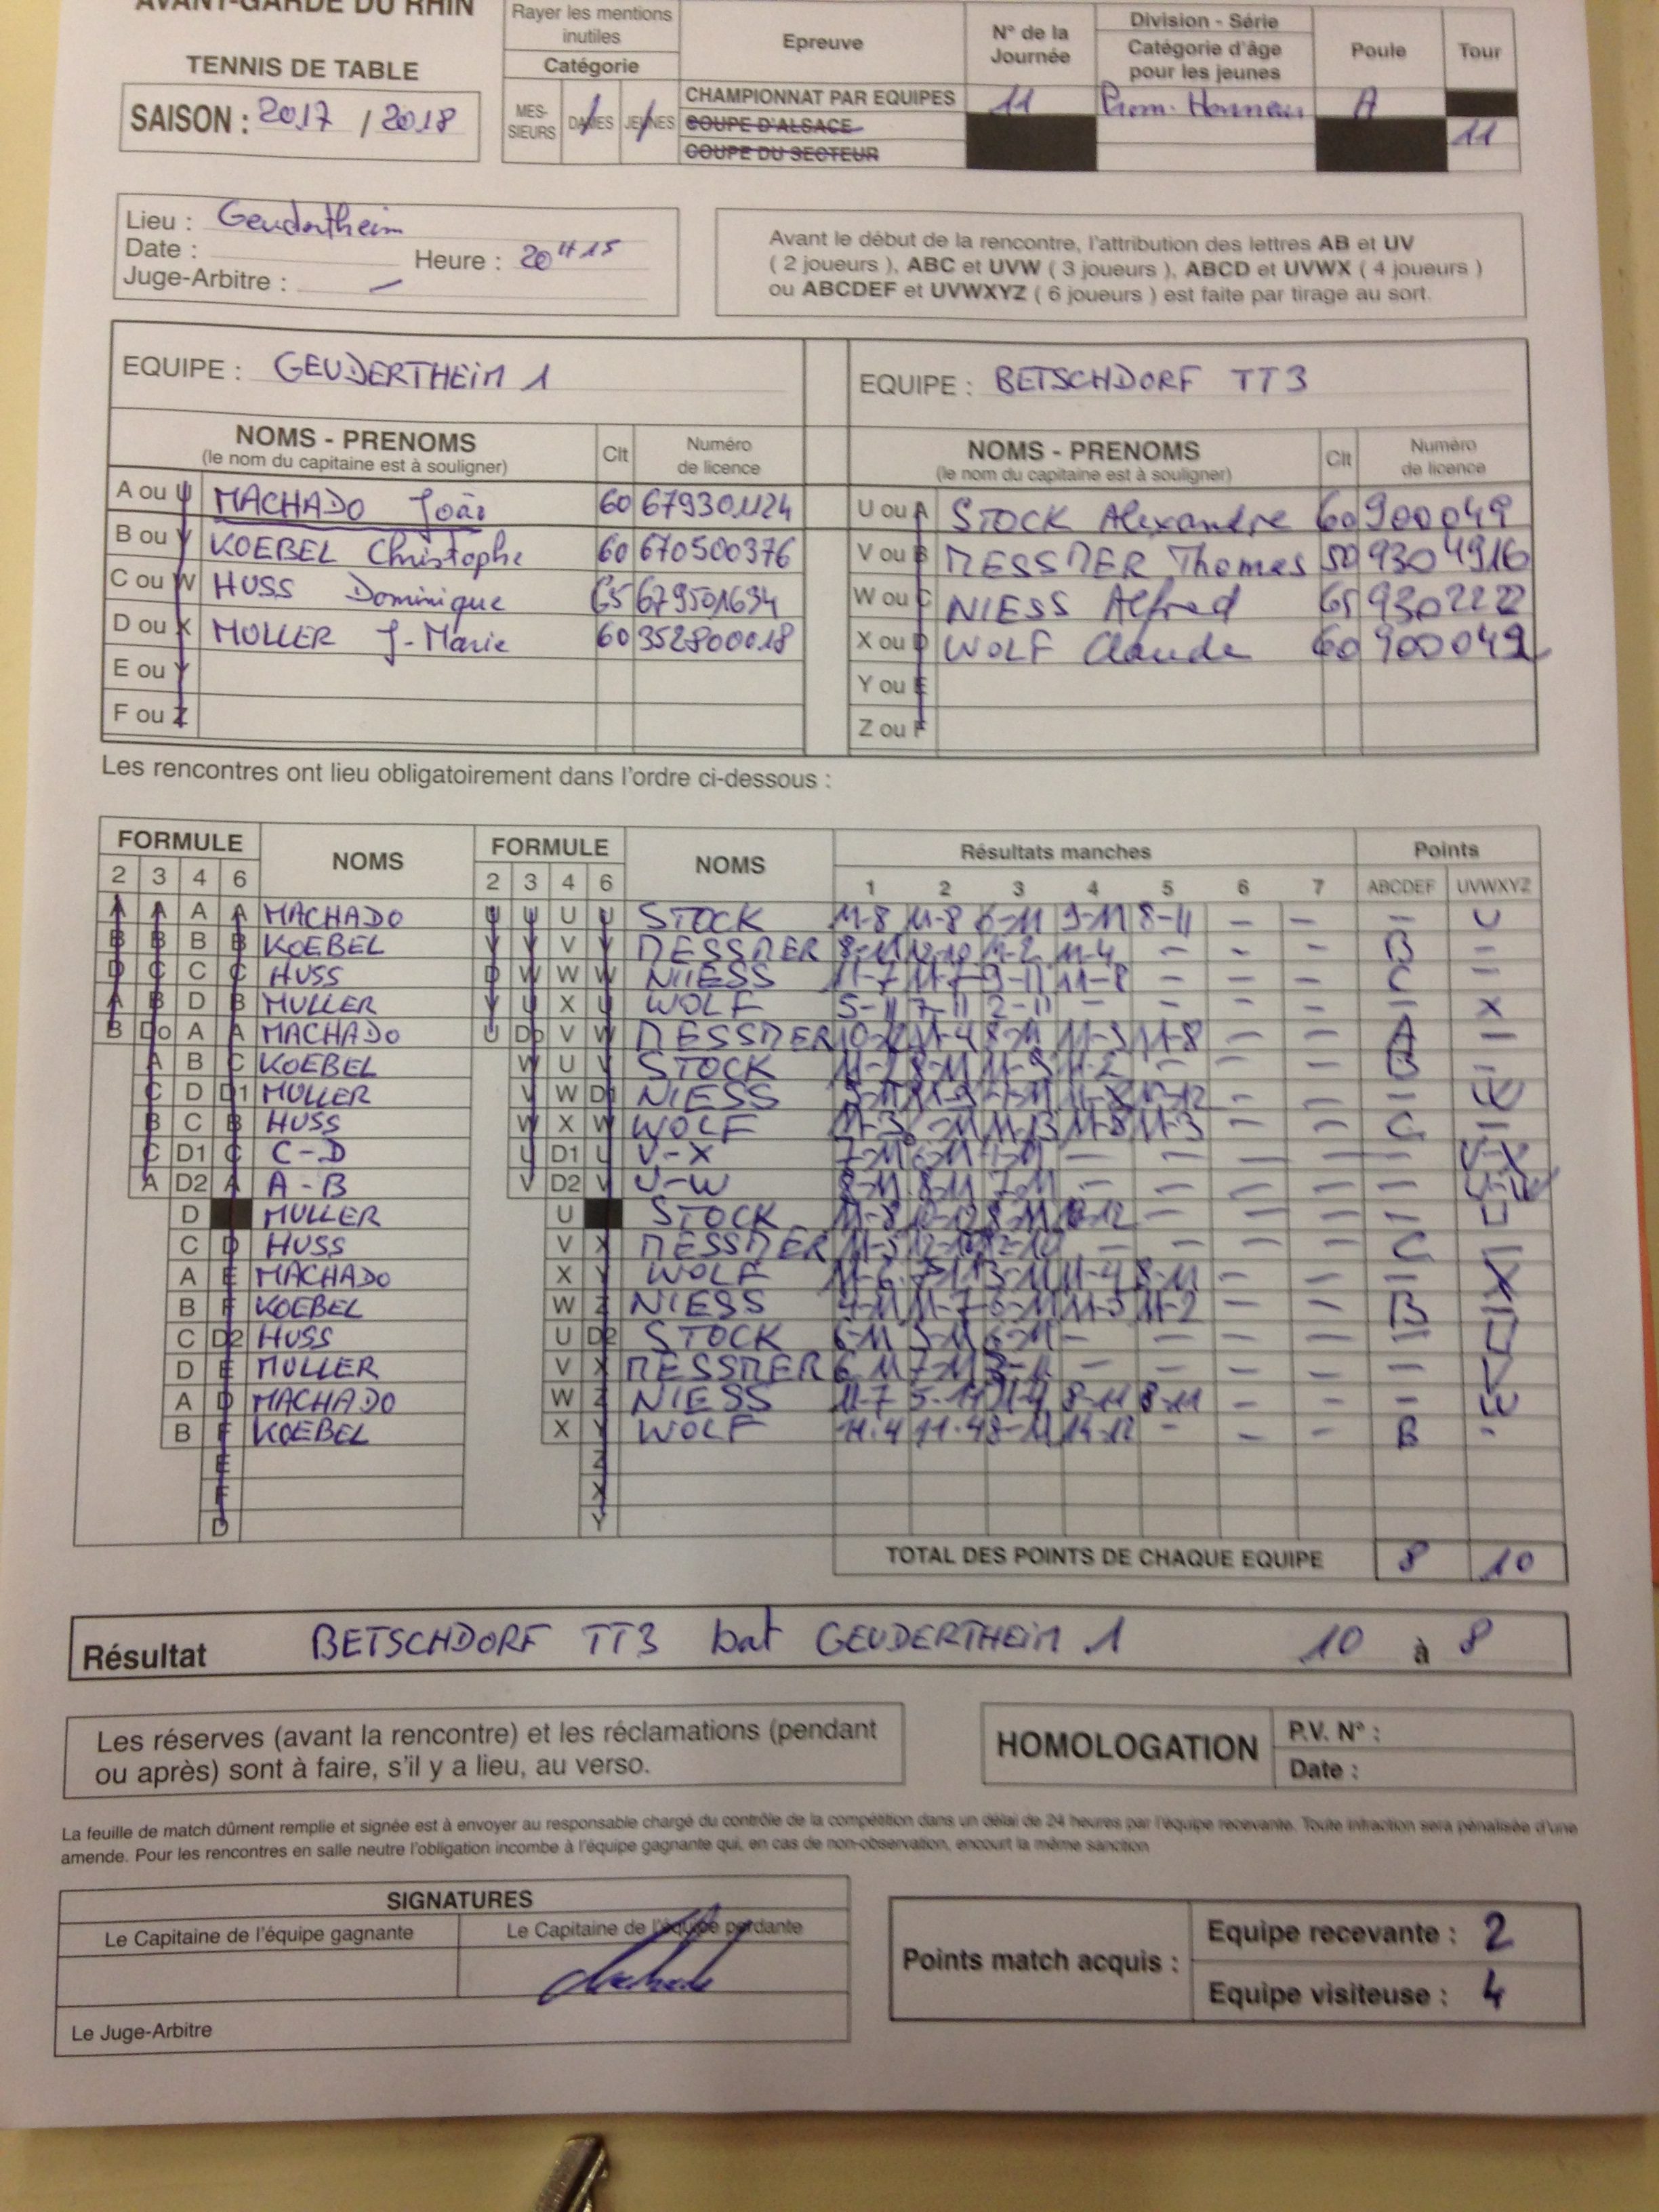 AVANT-GARDE DU RHIN
TENNIS DE TABLE
SAISON : 2017 / 2018
Rayer les mentions inutiles
Catégorie
MES-SIEURS DAMES JEUNES
Epreuve
N° de la Journée
Division - Série
Catégorie d'âge pour les jeunes
Poule
Tour
CHAMPIONNAT PAR EQUIPES 11 Prom. Honneur A
COUPE D'ALSACE 11
COUPE DU SECTEUR
Lieu : Geudertheim
Date :
Heure : 20H15
Juge-Arbitre : –
Avant le début de la rencontre, l'attribution des lettres AB et UV
( 2 joueurs ), ABC et UVW ( 3 joueurs ), ABCD et UVWX ( 4 joueurs )
ou ABCDEF et UVWXYZ ( 6 joueurs ) est faite par tirage au sort.
EQUIPE : GEUDERTHEIM 1
EQUIPE : BETSCHDORF TT3
NOMS - PRENOMS Clt Numéro
(le nom du capitaine est à souligner) de licence
NOMS - PRENOMS Clt Numéro
(le nom du capitaine est à souligner) de licence
A ou U MACHADO João 60 679301124
B ou V KOEBEL Christophe 60 670500376
C ou W HUSS Dominique 65 679501634
D ou X MULLER J-Marie 60 352800018
E ou Y
F ou Z
U ou A STOCK Alexandre 60 900049
V ou B MESSMER Thomas 50 9304916
W ou C NIESS Alfred 65 930222
X ou D WOLF Claude 60 900049
Y ou E
Z ou F
Les rencontres ont lieu obligatoirement dans l'ordre ci-dessous :
FORMULE NOMS FORMULE NOMS Résultats manches Points
2 3 4 6 2 3 4 6 1 2 3 4 5 6 7 ABCDEF UVWXYZ
A A A A MACHADO U U U U STOCK 11-8 11-8 6-11 9-11 8-11 – – – U
B B B B KOEBEL V V V V MESSMER 8-11 12-10 11-2 11-4 – – – B –
D C C C HUSS D W W W NIESS 11-7 11-7 9-11 11-8 – – – C –
A B D B MULLER V U X U WOLF 5-11 7-11 2-11 – – – – – X
B Do A A MACHADO U Do V W MESSMER 11-4 8-11 11-3 11-8 – – A –
A B C KOEBEL W U V STOCK 8-11 11-9 11-2 – – – B –
C D D1 MULLER V W D1 NIESS – – W
B C B HUSS W X W WOLF 11-3 11-8 11-3 – – C –
C D1 C C-D U D1 U V-X 7-11 6-11 – – – – – V-X
A D2 A A-B V D2 V U-W 8-11 8-11 7-11 – – – – – U-W
D MULLER U STOCK 11-8 10-12 8-11 10-12 – – – – U
C D HUSS V X MESSMER 12-10 12-10 – – – – C –
A E MACHADO X Y WOLF 11-6 11-4 8-11 – – – X
B F KOEBEL W Z NIESS 4-11 11-7 6-11 11-2 – – B –
C D2 HUSS U D2 STOCK 6-11 5-11 6-11 – – – – – U
D E MULLER V X MESSMER 6-11 7-11 – – – – – V
A D MACHADO W Z NIESS 11-7 5-11 8-11 8-11 – – – W
B F KOEBEL X Y WOLF 11-4 11-4 8-11 14-12 – – – B –
E Z
F X
D Y
TOTAL DES POINTS DE CHAQUE EQUIPE 8 10
Résultat BETSCHDORF TT3 bat GEUDERTHEIM 1 10 à 8
Les réserves (avant la rencontre) et les réclamations (pendant
ou après) sont à faire, s'il y a lieu, au verso.
HOMOLOGATION
P.V. N° :
Date :
La feuille de match dûment remplie et signée est à envoyer au responsable chargé du contrôle de la compétition dans un délai de 24 heures par l'équipe recevante. Toute infraction sera pénalisée d'une
amende. Pour les rencontres en salle neutre l'obligation incombe à l'équipe gagnante qui, en cas de non-observation, encourt la même sanction
SIGNATURES
Le Capitaine de l'équipe gagnante
Le Capitaine de l'équipe perdante
Le Juge-Arbitre
Points match acquis :
Equipe recevante : 2
Equipe visiteuse : 4